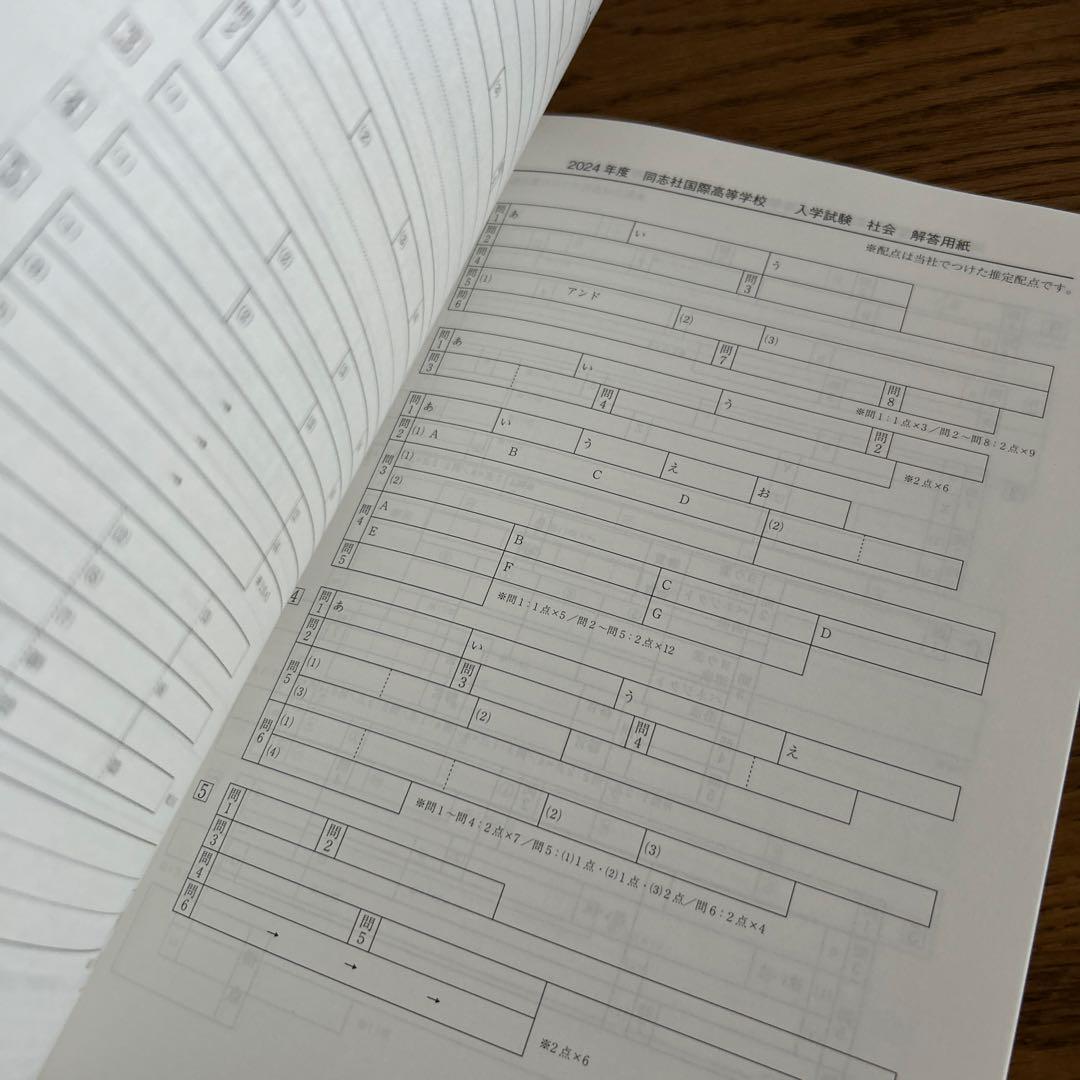 2024年度 同志社国際高等学校 入学試験 社会 解答用紙
※配点は当社でつけた推定配点です。
問1 あ い う
問2
問4 問3
問5 (1) アンド (2) (3)
問6 問7 問8
※問1:1点×3/問2~問8:2点×9
問1 あ い う 問2
問3 問4
※2点×6
問1 あ い う え お
問2 (1) A B C D (2)
問3 (1)
(2)
問4 A B C D
E F G
問5
※問1:1点×5/問2~問5:2点×12
4
問1 あ い う え
問2 問3 問4
問5 (1) (2)
(3)
問6 (1) (2) (3)
(4)
※問1~問4:2点×7/問5:(1)1点・(2)1点・(3)2点/問6:2点×4
5
問1 問2
問3
問4 問5
問6 → → →
※2点×6